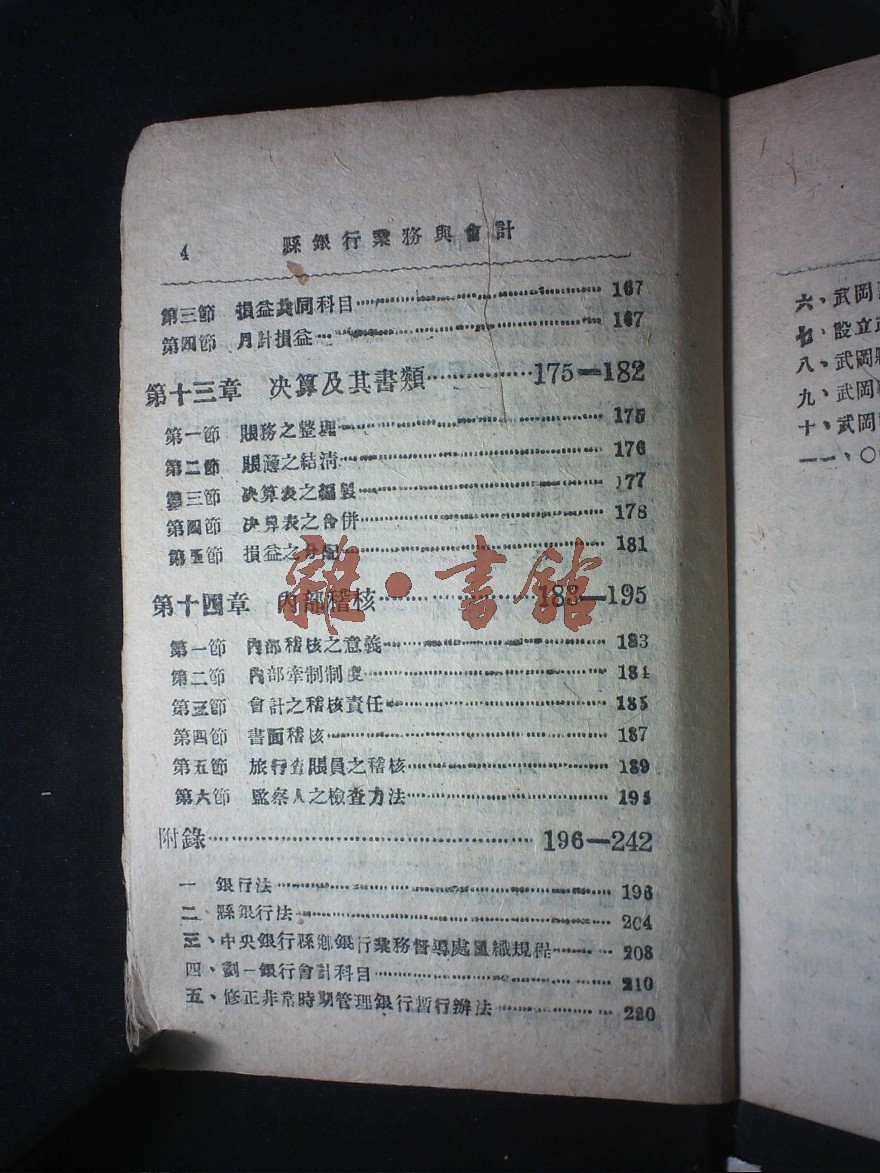 4 縣銀行業務與會計
第三節 損益共同科目 167
第四節 月計損益 167
第十三章 決算及其書類 175—182
第一節 賬務之整理 175
第二節 賬簿之結清 176
第三節 決算表之編製 177
第四節 決算表之合併 178
第五節 損益之分配 181
雜·書館
第十四章 內部稽核 183—195
第一節 內部稽核之意義 183
第二節 內部牽制制度 184
第三節 會計之稽核責任 185
第四節 書面稽核 187
第五節 旅行查賬員之稽核 189
第六節 監察人之檢查方法
附錄 196—242
一 銀行法 196
二、縣銀行法 204
三、中央銀行縣鄉銀行業務督導處組織規程 208
四、劃一銀行會計科目 210
五、修正非常時期管理銀行暫行辦法 220
六、武岡
七、設立
八、武岡縣
九、武岡
十、武岡
一一、〇